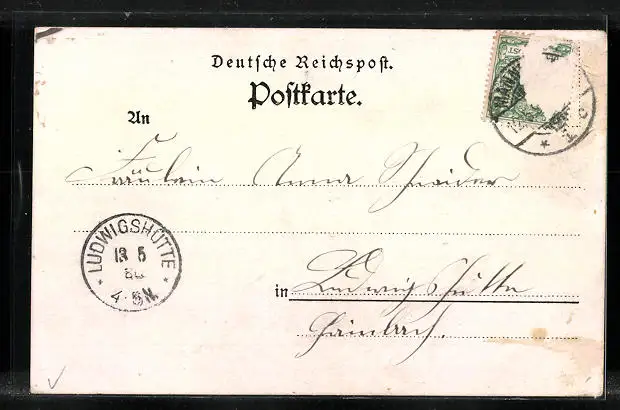 Deutsche Reichspost.
Postkarte.
An
Fräulein Anna Schneider
LUDWIGSHÜTTE
13 5
4-5N.
in Ludwigshütte